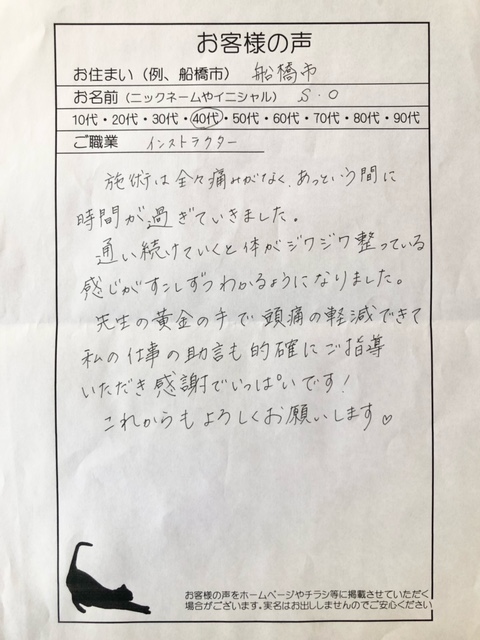 お客様の声
お住まい（例、船橋市） 船橋市
お名前（ニックネームやイニシャル） S・O
10代・20代・30代・40代・50代・60代・70代・80代・90代
ご職業 インストラクター
施術は全々痛みがなく、あっという間に
時間が過ぎていきました。
通い続けていくと体がジワジワ整っている
感じがすこしずつわかるようになりました。
先生の黄金の手で頭痛の軽減できて
私の仕事の助言も的確にご指導
いただき感謝でいっぱいです！
これからもよろしくお願いします♡
お客様の声をホームページやチラシ等に掲載させていただく
場合がございます。実名はお出ししませんのでご安心ください